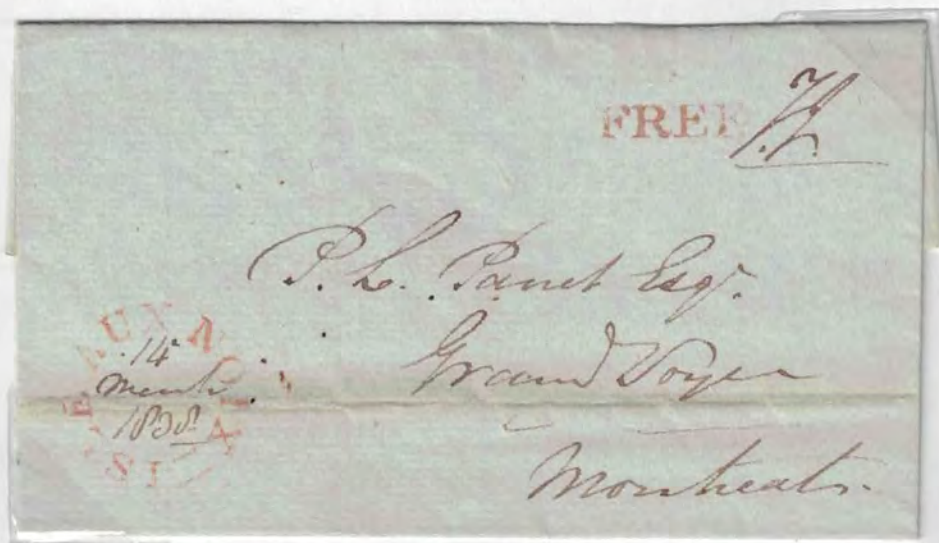 FREE
P. L. Panet Esqr.
Grand Voyer
Montreal
ISLE AUX NOIX
14
March
1838